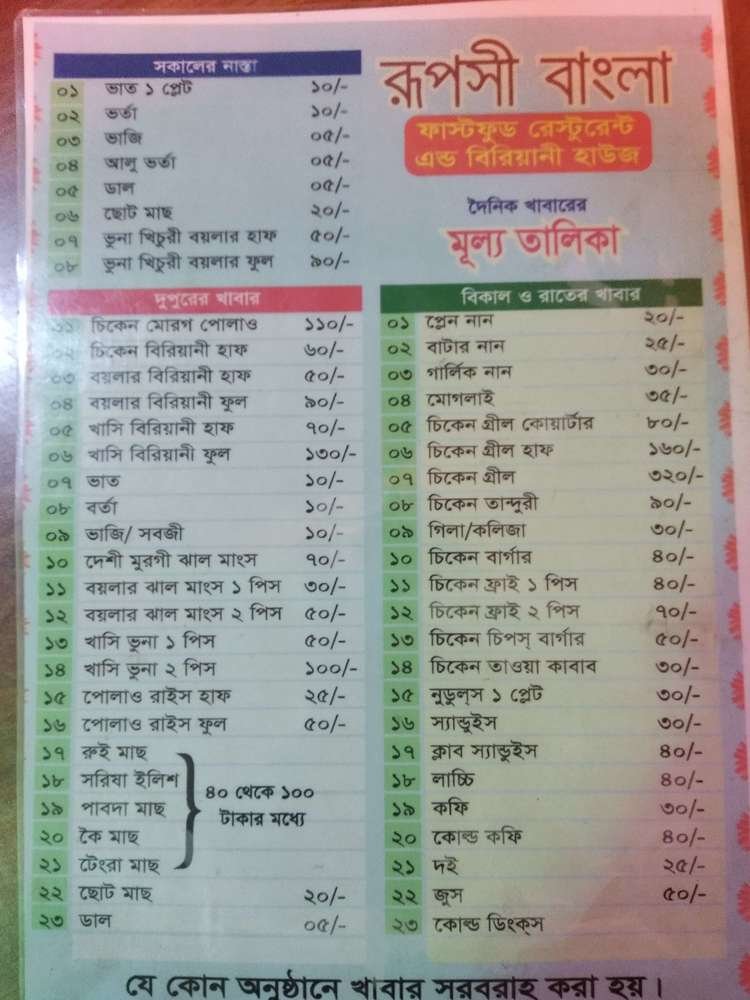 রূপসী বাংলা
ফাস্টফুড রেস্টুরেন্ট
এন্ড বিরিয়ানী হাউজ
দৈনিক খাবারের
মূল্য তালিকা
সকালের নাস্তা
০১ ভাত ১ প্লেট ১০/-
০২ ভর্তা ১০/-
০৩ ভাজি ০৫/-
০৪ আলু ভর্তা ০৫/-
০৫ ডাল ০৫/-
০৬ ছোট মাছ ২০/-
০৭ ভুনা খিচুরী বয়লার হাফ ৫০/-
০৮ ভুনা খিচুরী বয়লার ফুল ৯০/-
দুপুরের খাবার
০১ চিকেন মোরগ পোলাও ১১০/-
০২ চিকেন বিরিয়ানী হাফ ৬০/-
০৩ বয়লার বিরিয়ানী হাফ ৫০/-
০৪ বয়লার বিরিয়ানী ফুল ৯০/-
০৫ খাসি বিরিয়ানী হাফ ৭০/-
০৬ খাসি বিরিয়ানী ফুল ১৩০/-
০৭ ভাত ১০/-
০৮ বর্তা ১০/-
০৯ ভাজি/ সবজী ১০/-
১০ দেশী মুরগী ঝাল মাংস ৭০/-
১১ বয়লার ঝাল মাংস ১ পিস ৩০/-
১২ বয়লার ঝাল মাংস ২ পিস ৫০/-
১৩ খাসি ভুনা ১ পিস ৫০/-
১৪ খাসি ভুনা ২ পিস ১০০/-
১৫ পোলাও রাইস হাফ ২৫/-
১৬ পোলাও রাইস ফুল ৫০/-
১৭ রুই মাছ
১৮ সরিষা ইলিশ
১৯ পাবদা মাছ
২০ কৈ মাছ
২১ টেংরা মাছ
৪০ থেকে ১০০
টাকার মধ্যে
২২ ছোট মাছ ২০/-
২৩ ডাল ০৫/-
বিকাল ও রাতের খাবার
০১ প্লেন নান ২০/-
০২ বাটার নান ২৫/-
০৩ গার্লিক নান ৩০/-
০৪ মোগলাই ৩৫/-
০৫ চিকেন গ্রীল কোয়ার্টার ৮০/-
০৬ চিকেন গ্রীল হাফ ১৬০/-
০৭ চিকেন গ্রীল ৩২০/-
০৮ চিকেন তান্দুরী ৯০/-
০৯ গিলা/কলিজা ৩০/-
১০ চিকেন বার্গার ৪০/-
১১ চিকেন ফ্রাই ১ পিস ৪০/-
১২ চিকেন ফ্রাই ২ পিস ৭০/-
১৩ চিকেন চিপস্ বার্গার ৫০/-
১৪ চিকেন তাওয়া কাবাব ৩০/-
১৫ নুডুলস ১ প্লেট ৩০/-
১৬ স্যান্ডুইস ৩০/-
১৭ ক্লাব স্যান্ডুইস ৪০/-
১৮ লাচ্চি ৪০/-
১৯ কফি ৩০/-
২০ কোল্ড কফি ৪০/-
২১ দই ২৫/-
২২ জুস ৫০/-
২৩ কোল্ড ডিংক্স
যে কোন অনুষ্ঠানে খাবার সরবরাহ করা হয়।